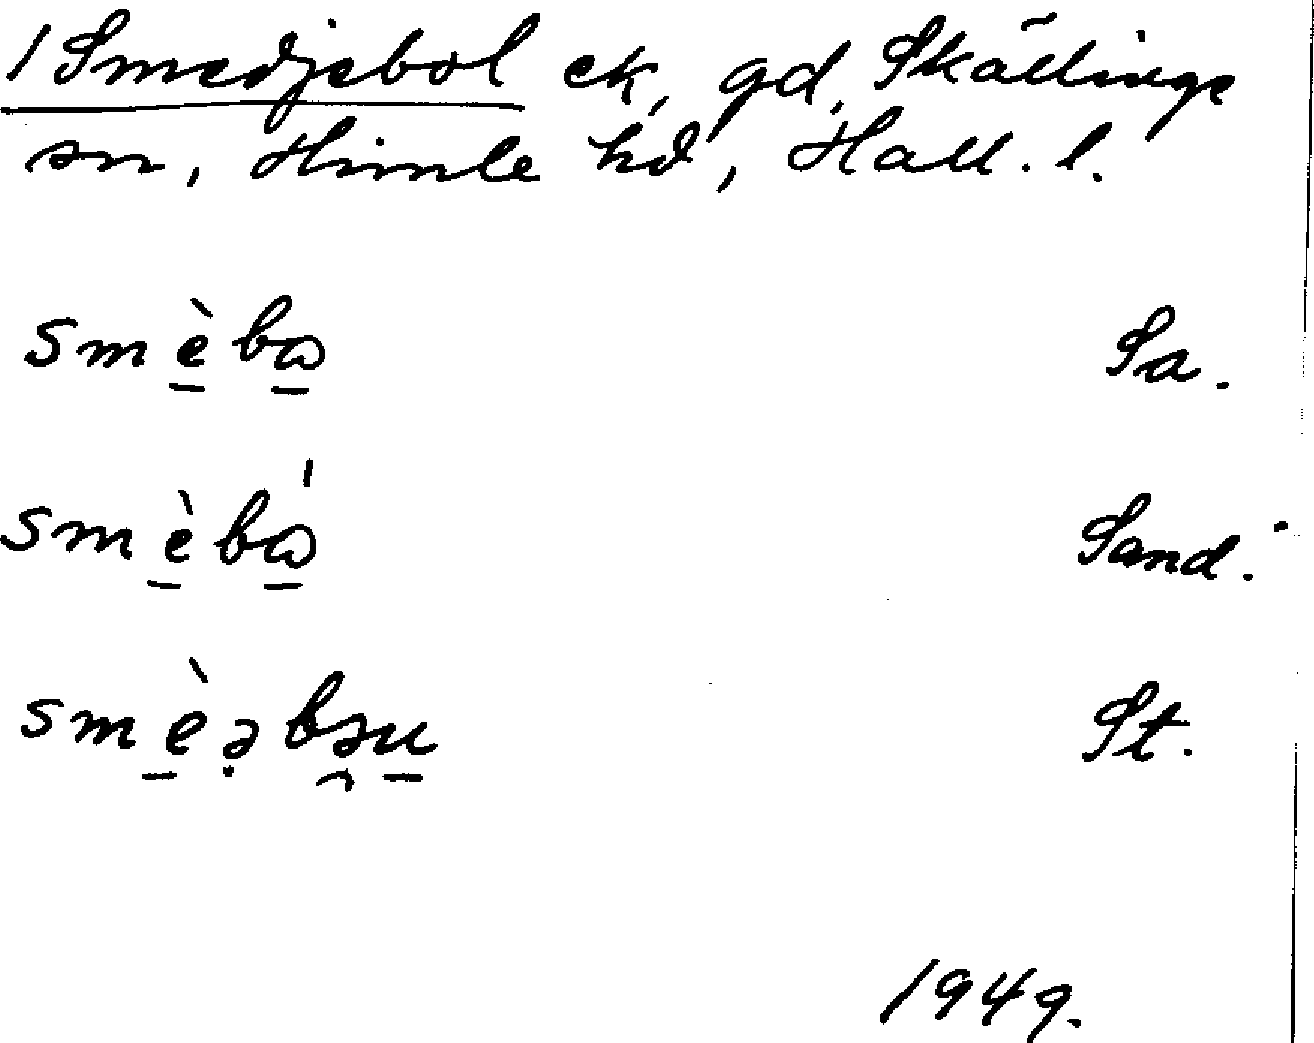 1 Smedjebol ek, gd, Skällinge
sn, Himle hd, Hall. l.
smèba Sa.
smèbá Sand.
smèəbəu St.
1949.